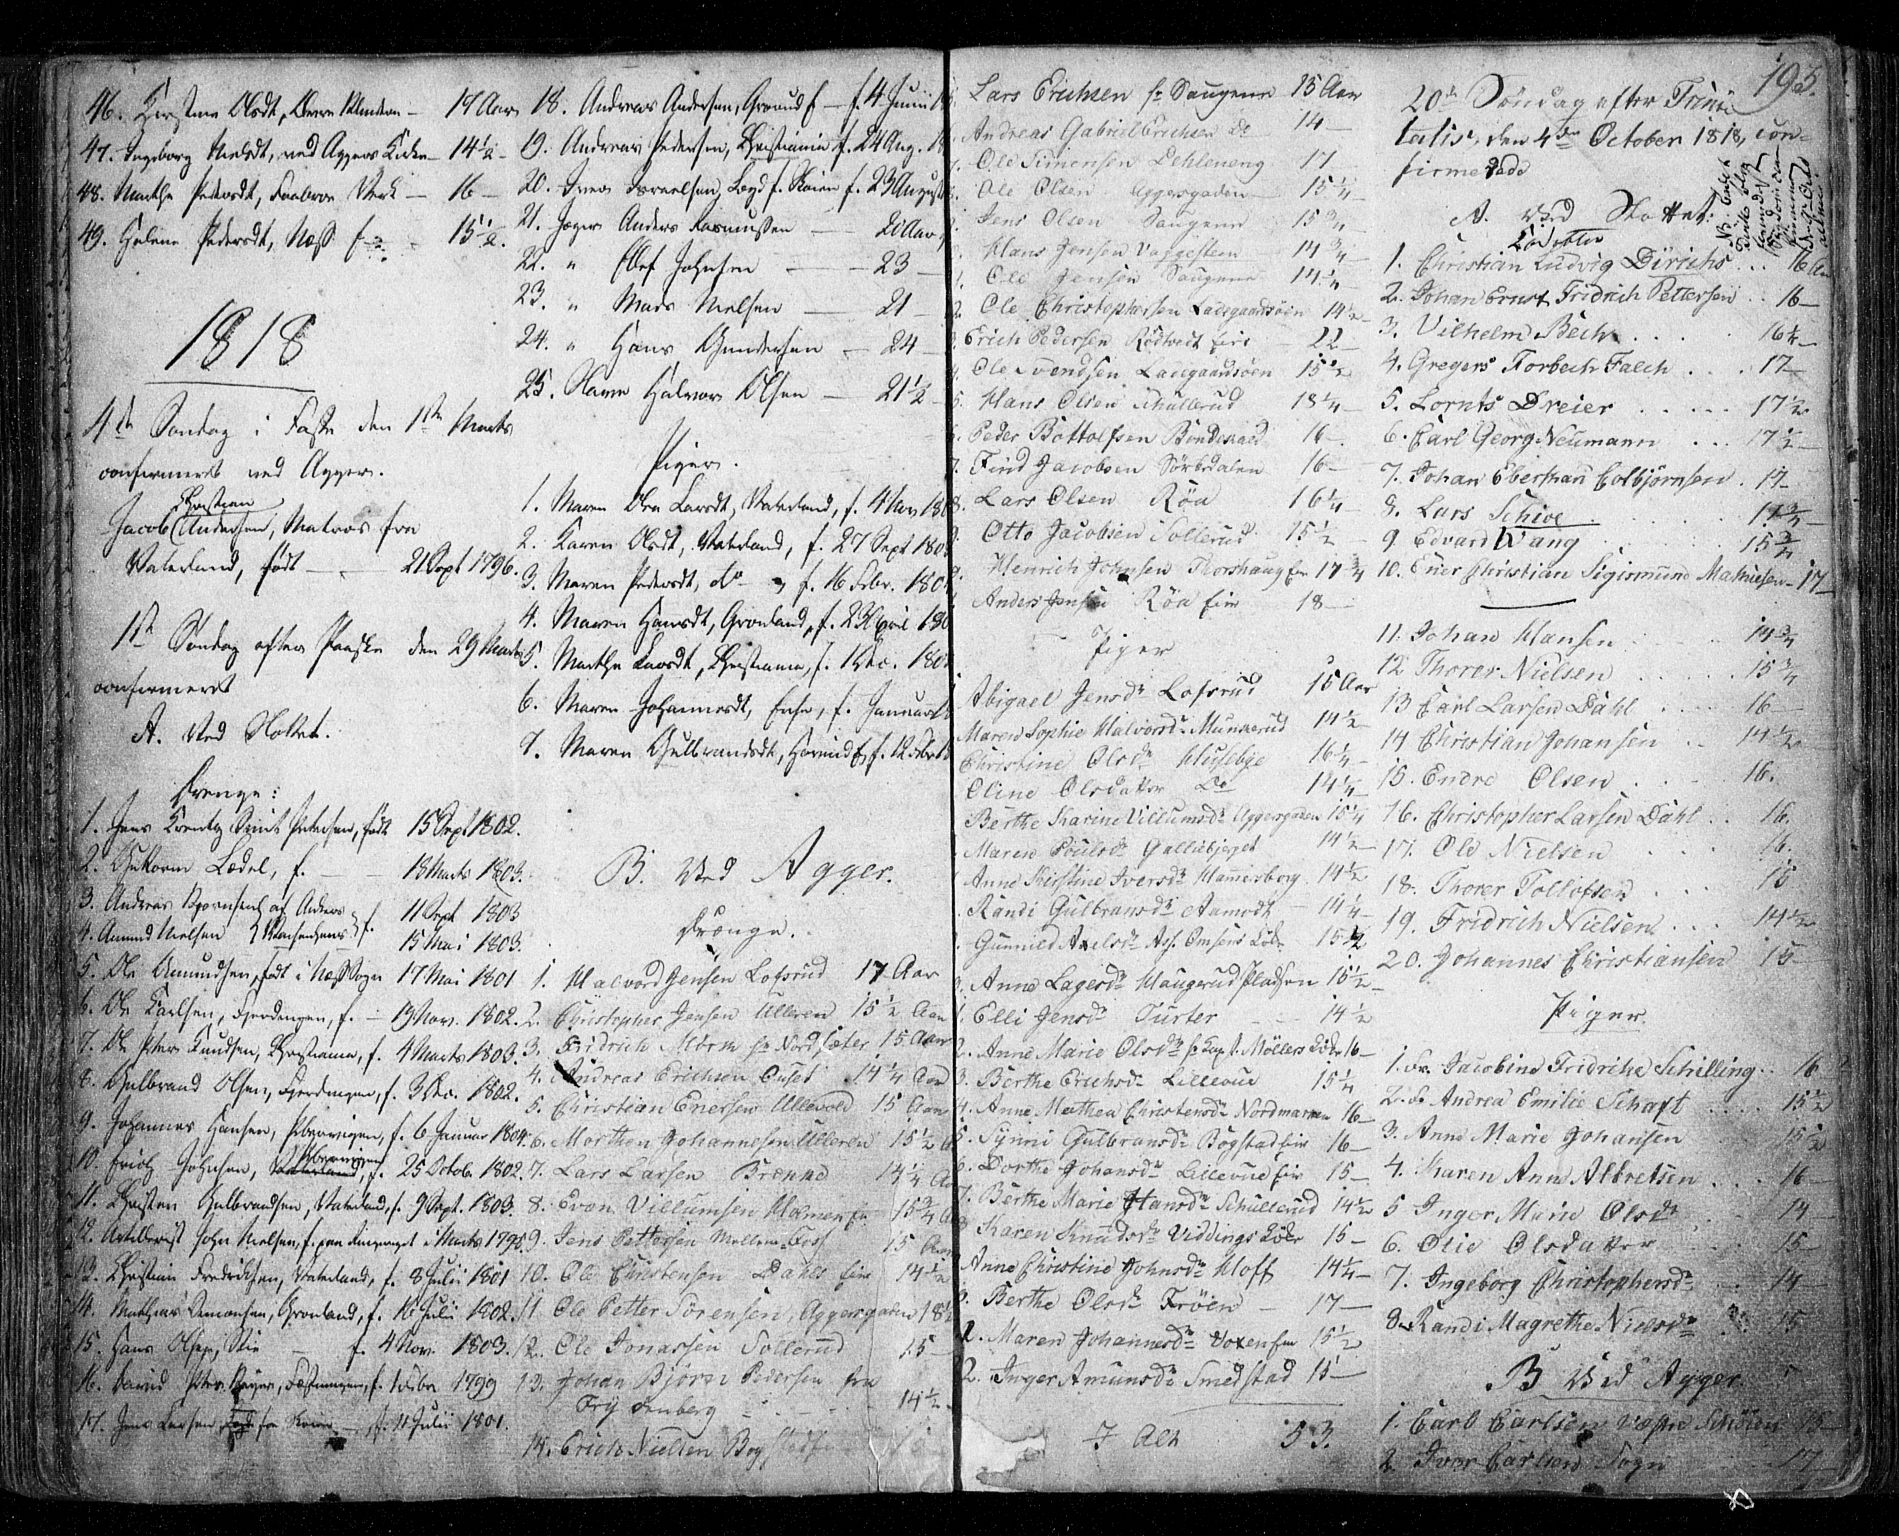 46. Kirstine Olsdt, 17 Aar
47. Ingeborg Nielsdt, ved Aggers Kirke 14 1/2
48. Marthe Pedersdt, Verk 16
49. Helene Pedersdt, Næss 15 1/2.
1818
4de Søndag i Faste den 1ste Marts
confirmeret ved Agger.
Christian
Jacob Andersen, Matros fra
Vaterland, født 21 Sept 1796.
1ste Søndag efter Paaske den 29 Marts
confirmeret
A. Ved Slottet.
Drenge:
1. Jens Petersen, født 15 Sept 1802.
2. Guttorm Lædel, f. 18 Marts 1803.
3. Andreas 11 Sept 1803
4. Amund Nielsen 15 Mai 1803.
5. Ole Amundsen, født i Næss Sogn 17 Mai 1801
6. Ole Karlsen, Fjerdingen, f. 19 Nov. 1802.
7. Ole Peter Knudsen, Christiania, f. 4 Marts 1803.
8. Gulbrand Olsen, Fjerdingen, f. 3 Dec. 1802.
9. Johannes Hansen, Pibervigen, f. 6 Januar 1804.
10. Erich Johnsen, Pibervigen, f. 25 Octob. 1802.
11. Christen Gulbrandsen, Vaterland, f. 9 Sept. 1803.
12. Artillerist John Nielsen, f. i Marts 1795.
13. Christian Fredrichsen, Vaterland, f. 8 Julii 1801
14. Mathias Amonsen, Grønland, f. 10 Julii 1802.
15. Hans Olsen, f. 4 Nov. 1803.
16. Peter Fæstningen, f. 1799
17. Jens Larsen f. 11 Julii 1801.
18. Andreas Andersen, f. 4 Junii
19. Andreas Pedersen, Christiania f. 24 Aug.
20. Iver Israelsen, f. 23 August
21. Jæger Anders Rasmussen 20 Aar
22. " Ellef Johnsen 23
23. " Mads Nielsen 21
24. " Hans Gundersen 24
25. Halvor Olsen 21 1/2
Piger.
1. Maren Larsdt, Vaterland, f. 4 Nov
2. Karen Olsdt, Vaterland, f. 27 Sept
3. Maren Pedersdt, do f. 16 Febr.
4. Maren Hansdt, Grønland, f. 23 April
5. Marthe Larsdt, Christiania, f. 1 Dec.
6. Maren Johannesdt, f. Januar
7. Maren Gulbrandsdt, f. 12
B. Ved Agger.
Drenge.
1. Halvord Jensen Lofsrud 17 Aar
2. Christopher Jensen Ulleren 15 1/2 Aar
3. Fridrich Morm fr Nordsæter 15 Aar
4. Andreas Erichsen 14 1/4 Aar
5. Christian Enersen Ullevold 15 Aar
6. Morthen Johannesen Ulleren 15 1/2
7. Lars Larsen Brenne 14 1/4
8. Even Villumsen Holmen 15 3/4
9. Jens Pettersen Mellem Foss 15 Aar
10. Ole Christensen Dahls 14 1/2
11. Ole Petter Sørensen, Aggersgaden 18 1/2
12. Ole Jonassen Sollerud 15
13. Johan Bjørn Pedersen fra
Frydenberg 14 1/2
14. Erich Nielsen Bogstad
Lars Erichsen fr Saugene 15 Aar
Andreas Gabriel Erichsen Do 14
Ole Simensen Dehleneng 17
Ole Olsen Aggersgaden 15 1/4
Jens Olsen Saugene 15 3/4
Hans Jensen Vaggesteen 14 3/4
Ole Jensen Saugene 14 1/4
Ole Christophersen Ladegaardsøen 14 1/2
Erich Pedersen Rødtvedt 22
Ole Svendsen Ladegaardsøen 15 1/2
Hans Olsen Schullerud 18 1/4
Peder Bottolfsen 16
Find Jacobsen Sørkedalen 16
Lars Olsen Røa 16 1/4
Otto Jacobsen Sollerud 15 1/2
Henrich Johnsen Torshaug 17 3/4
Anders Jensen Røa 18
Piger
Abigael Jensdr Lofsrud 15 Aar
Maren Sophie Halvorsdr Munkerud 14 1/2
Christine Olsdr Huseby 16 1/4
Oline Olsdatter Do 14 1/4
Berthe Karine Villumsdr Aggersgaden 15 1/4
Maren Poulsdr Gallebjerget 14 1/2
Anne Kirstine Iversdr Hammersborg 14 1/2
Randi Gulbransdr Aamodt 14 1/4
Gunnild Axelsdr Løke 15 1/2
Anne Lagesdr Haugerud Pladsen 15 1/2
Elli Jensdr Turter 14 1/2
2. Anne Marie Olsdr fr Capt. Møllers Løke 16
3. Berthe Erichsdr Lillevue 15 1/4
4. Anne Mathea Christensdr Nordmarken 16
5. Synni Gulbransdr Bogstad 16
6. Dorthe Johansdr Lillevue 15
7. Berthe Marie Hansdr Schullerud 14 1/2
Karen Knudsdr Viddings Løke 15
Anne Christine Johnsdr Hoff 14 1/4
Berthe Olsdr Frøen 17
1. Maren Johannesdr Voxen 15 1/2
2. Inger Amunsdr Smedstad 15
I Alt 53.
195.
20de Søndag efter Trini-
tatis, den 4de October 1818, con-
firmerede
A. Ved Slottet.
Cadetter
1. Christian Ludvig Dirichs 16 Aar
2. Johan Ernst Fridrich Pettersen 16
3. Vilhelm Bech 16 1/2
4. Gregers Torbech Falch 17
5. Lornts Dreier 17 1/2
6. Carl Georg Neumann 17 1/2
7. Johan Eberhard Colbjørnsen 17
8. Lars Schive 17 3/4
9. Edvard Wang 15 3/4
10. Ener Christian Sigismund Mathiesen 17
11. Johan Hansen 14 3/4
12 Thorer Nielsen 15 3/4
13 Carl Larsen Dahl 16
14 Christian Johansen 14 1/2
15. Endre Olsen 16.
16. Christopher Larsen Dahl 16.
17. Ole Nielsen 16.
18. Thorer Tollofsen 15
19. Fridrich Nielsen 14 1/2
20. Johannes Christiansen 15
Piger.
1. Fr. Jacobine Fridrike Schilling 16
2. Fr Andrea Emilie Schaft 15 1/2
3. Anne Marie Johansen 15 1/2
4. Karen Ann Albretsen 16
5 Inger Marie Olsdr 14
6. Olie Olsdatter 15
7. Ingeborg Christophersdr 14
8. Randi Magrethe Nielsdr 15
B Ved Agger.
1. Carl Carlsen Vestre Schøien 15
2. Iver Carlsen Sogn 17